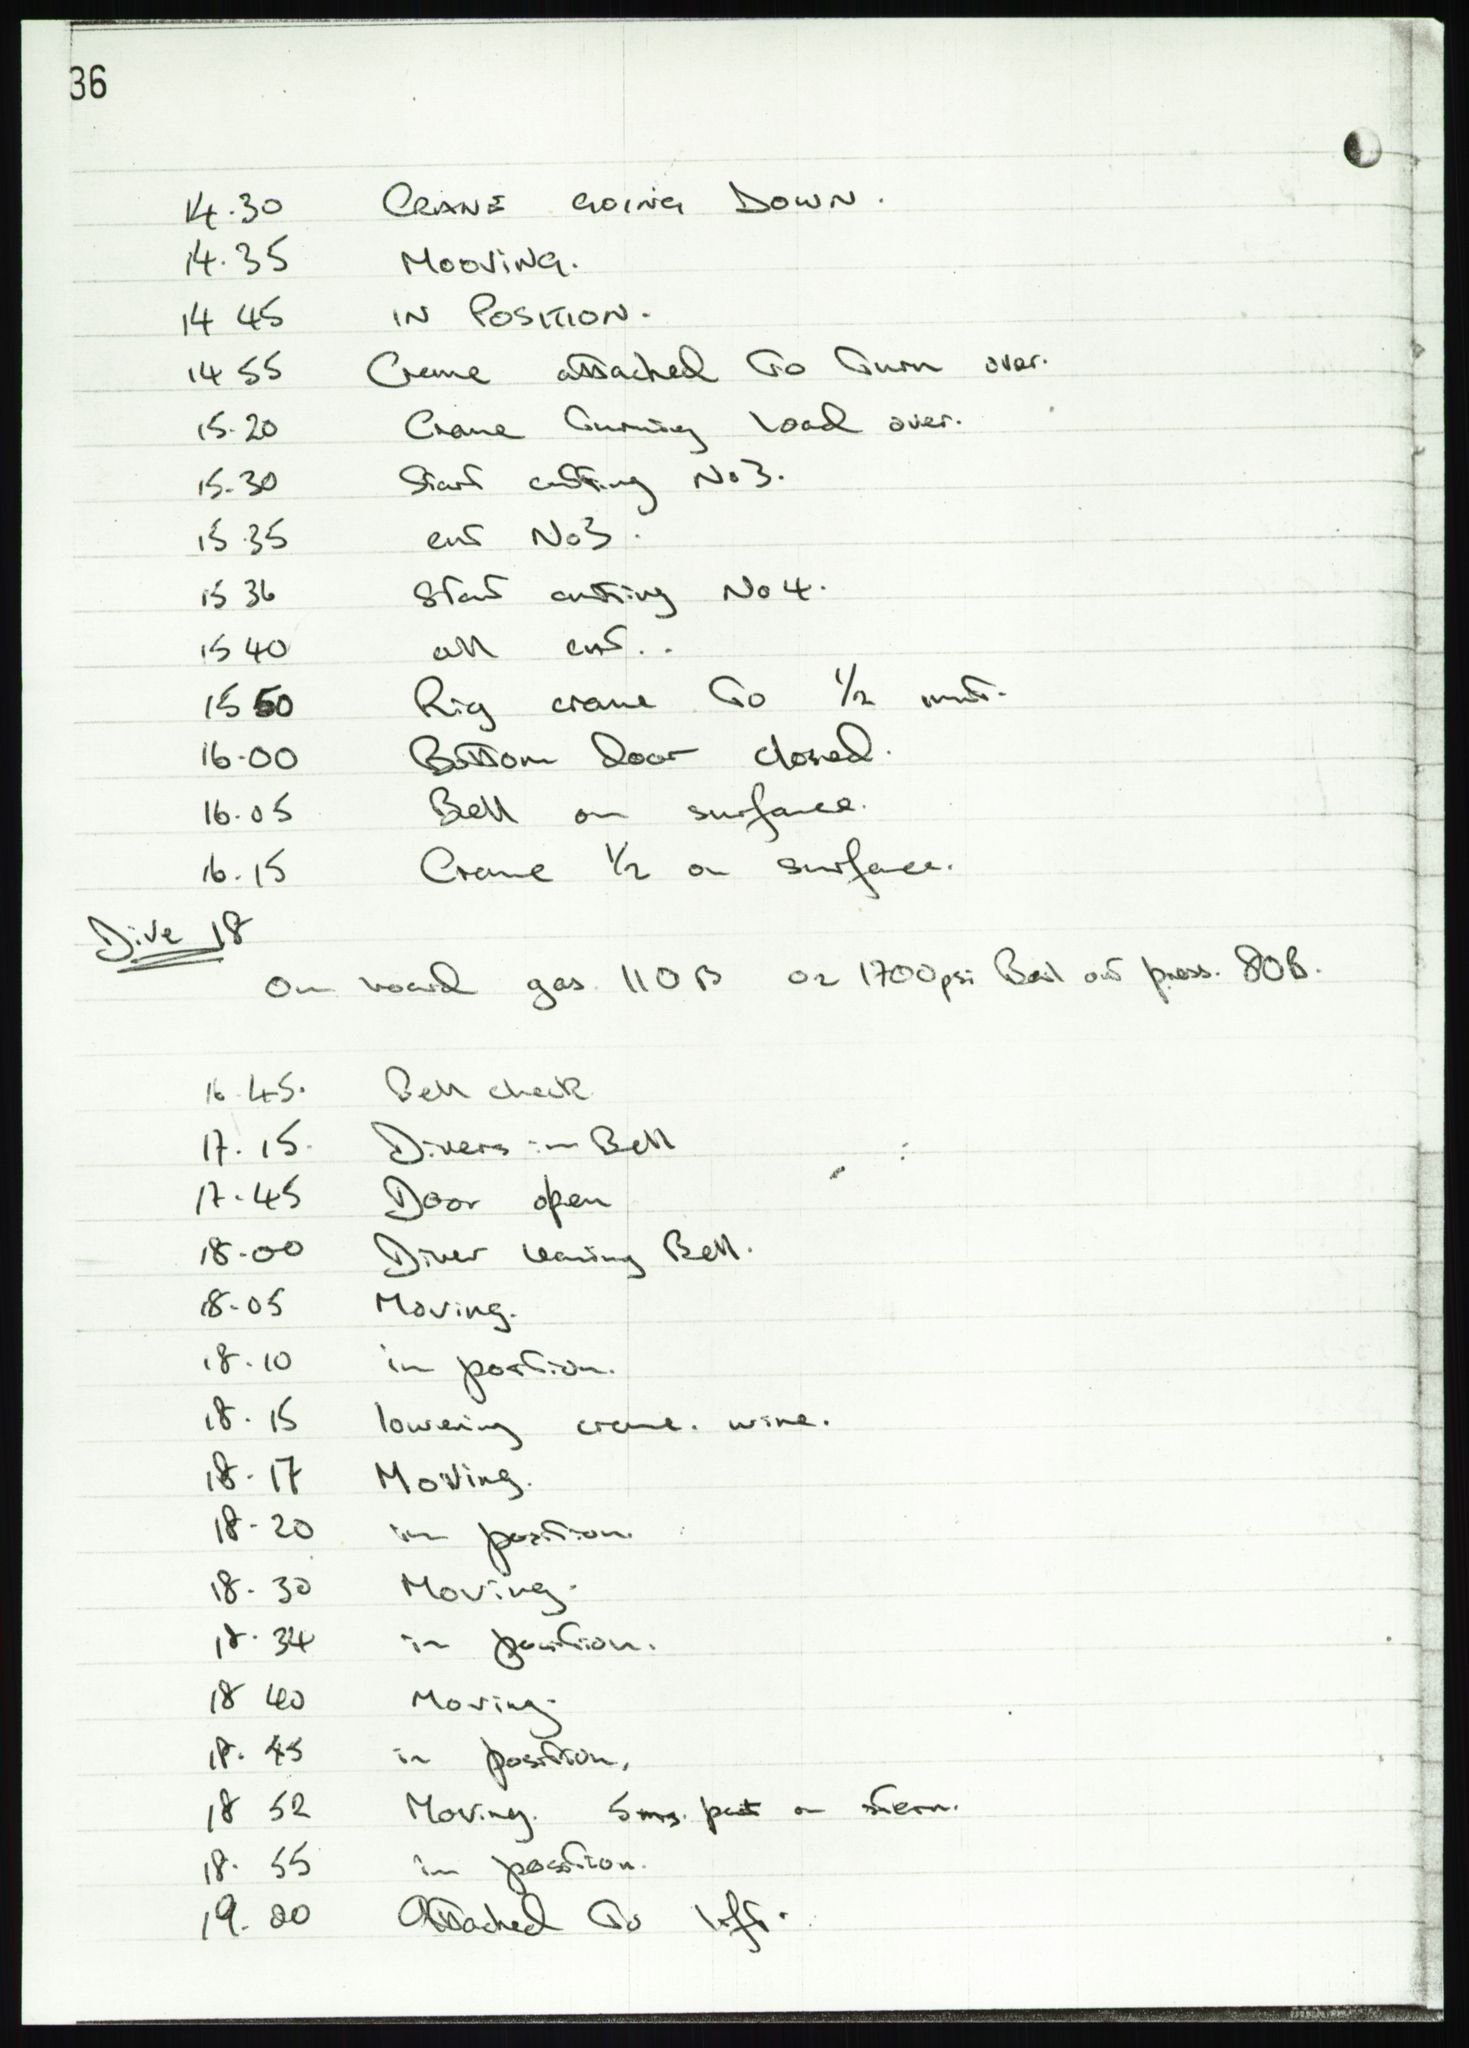 36
14.30 CRANE GOING DOWN.
14.35 MOOVING.
14 45 IN POSITION.
14 55 Crane attached to turn over.
15.20 Crane turning load over.
15.30 Start cutting No3.
15.35 cut No3.
15 36 Start cutting No4.
15 40 all cut..
15 50 Rig crane to 1/2 unit.
16.00 Bottom door closed.
16.05 Bell on surface.
16.15 Crane 1/2 on surface.
Dive 18
On board gas 110B O2 1700psi Bail out press. 80B.
16.45. Bell check
17.15. Divers in Bell
17.45 Door open
18.00 Diver leaving Bell.
18.05 Moving.
18.10 in position.
18.15 lowering crane. wire.
18.17 Moving.
18.20 in position.
18.30 Moving.
18.34 in position.
18 40 Moving.
18.45 in position,
18 52 Moving. on stern.
18.55 in position.
19.00 Attached to lift.